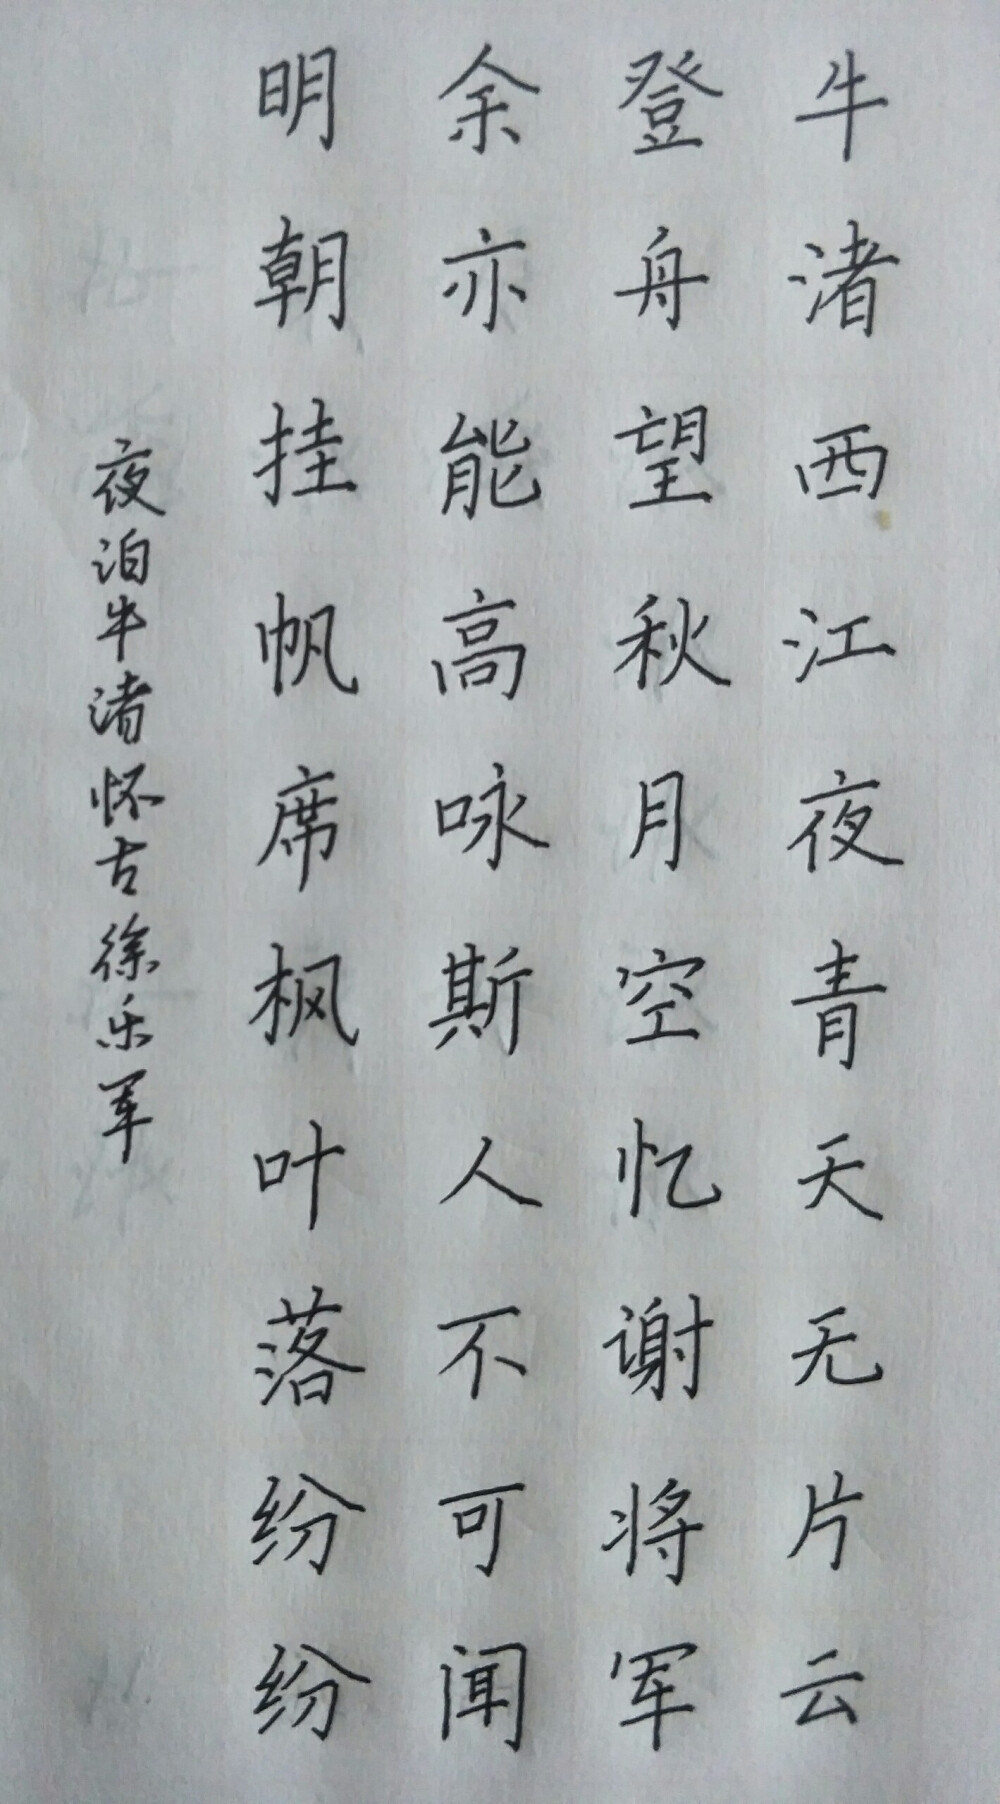 牛渚西江夜青天无片云
登舟望秋月空忆谢将军
余亦能高咏斯人不可闻
明朝挂帆席枫叶落纷纷
夜泊牛渚怀古徐乐军